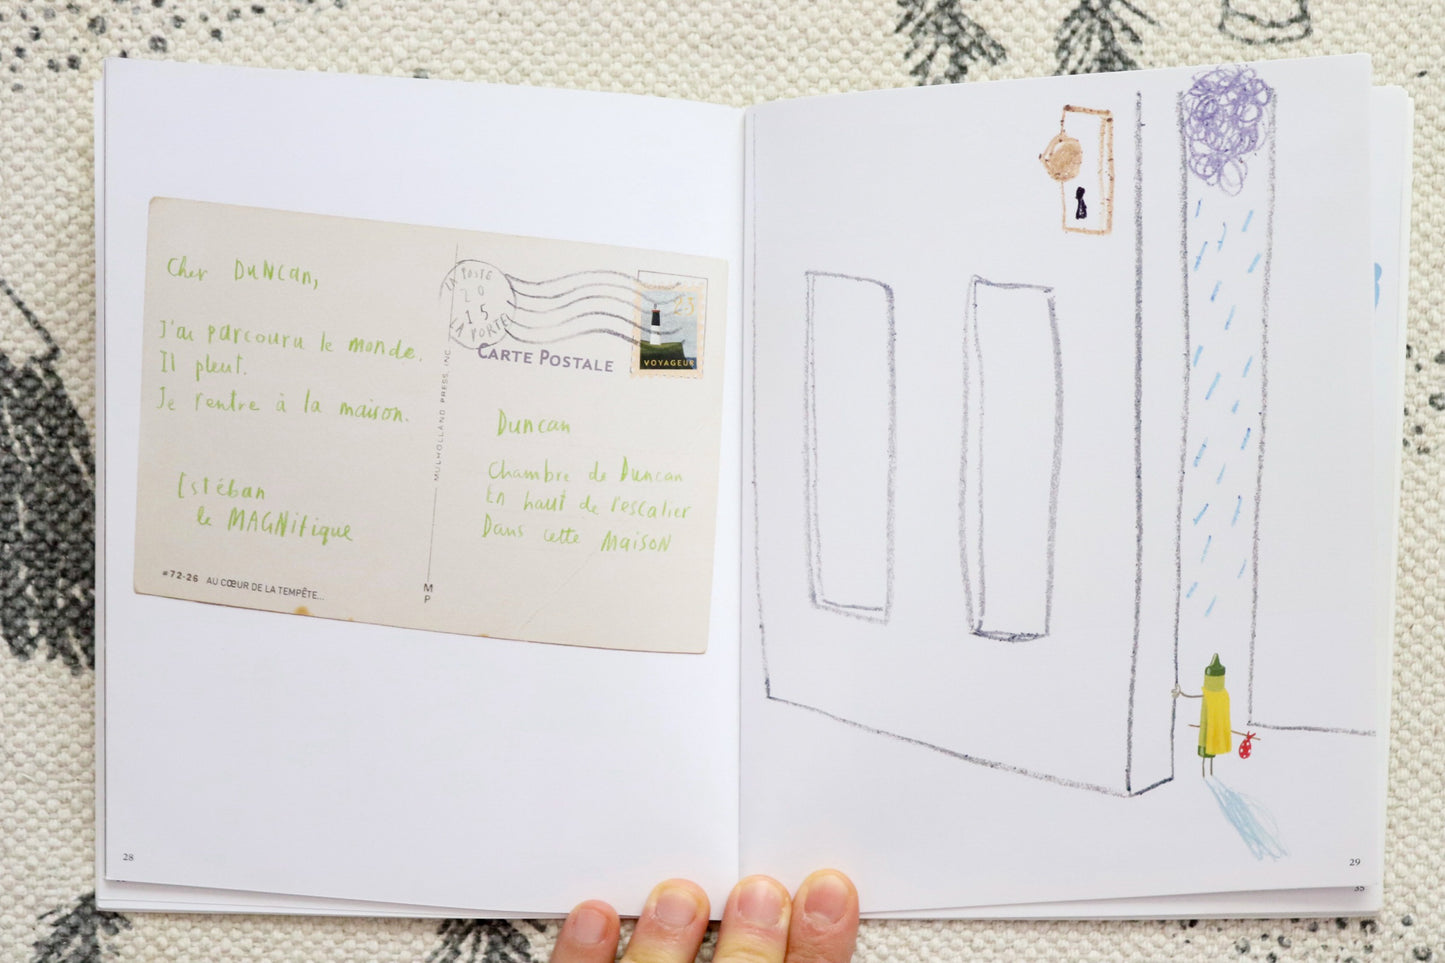 Cher Duncan,
J'ai parcouru le monde.
Il pleut.
Je rentre à la maison.
Estéban
le MAGNifique
#72-26 AU CŒUR DE LA TEMPÊTE...
MULHOLLAND PRESS, INC.
M
P
LA POSTE
20
15
LA PORTE
CARTE POSTALE
25
VOYAGEUR
Duncan
Chambre de Duncan
En haut de l'escalier
Dans cette MAISON
28
29
35